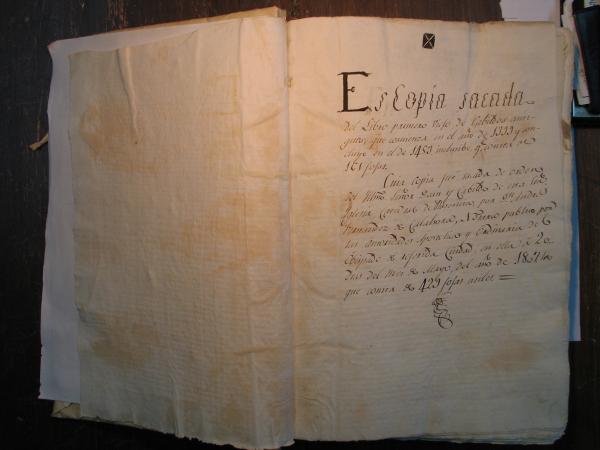 Es Copia sacada
del Libro primero Viejo de Cabildos anti-
guos, que comienza en el año de 1333 y con-
cluye en el de 1453 inclusibe, q.e consta de
151 fojas.
Cuia copia fue sacada de orden
del Yltmo Señor Dean y Cabildo de esta Sta
Yglesia por Dn
de Calahorra, Notario publico por
las autoridades Apostolica y Ordinaria de
Obispado de Ciudad, en ella à 20
dias del Mes de Mayo, del año de
que consta de 429 fojas utiles =